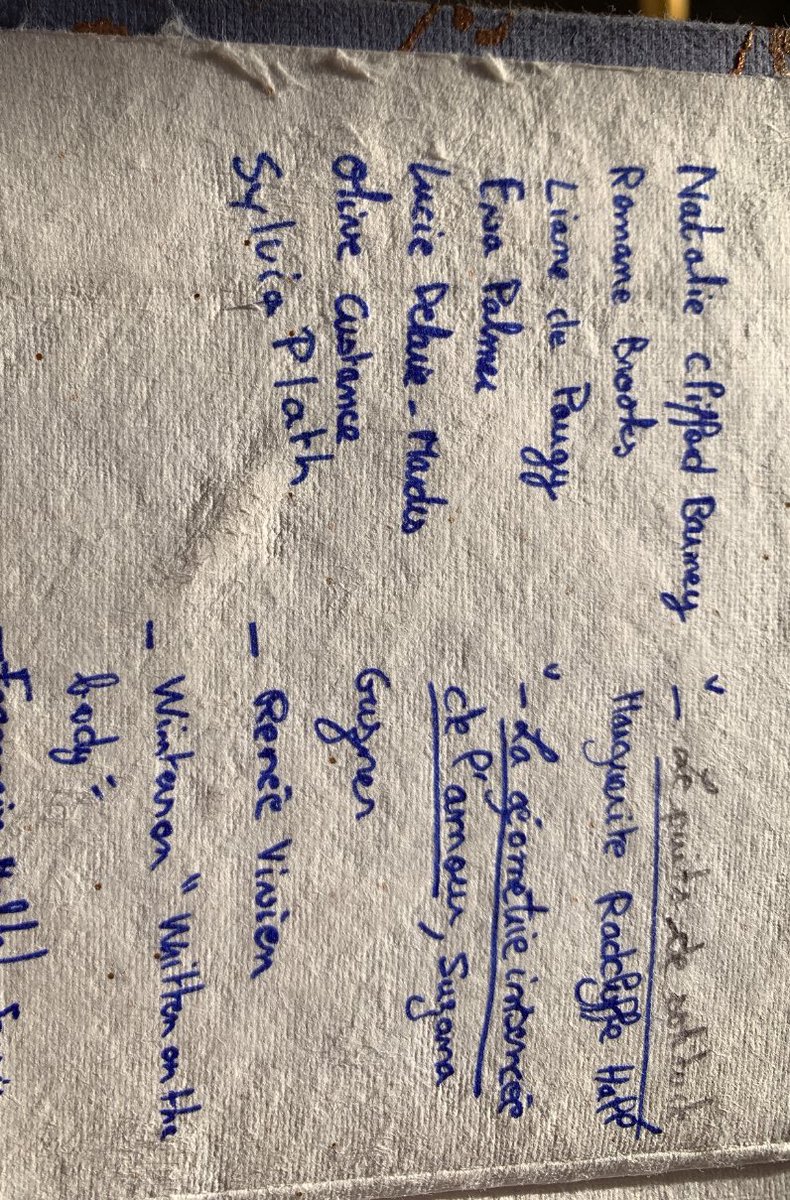 Natalie Clifford Barney
Romane Brooks
Liane de Pougy
Eva Palmer
Lucie Delarue-Mardus
Olive Custance
Sylvia Plath
- Le puits de solitude
Marguerite Radclyffe Hall
- La géométrie insensée
de l'amour, Suzana
Guzner
- Renée Vivien
- Winterson "Written on the
body"